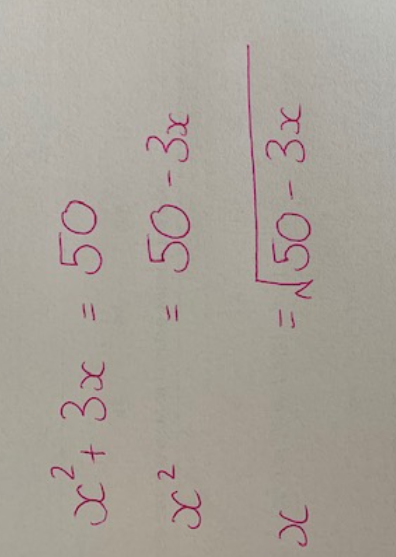 x² + 3x = 50
x² = 50 - 3x
x = √(50 - 3x)